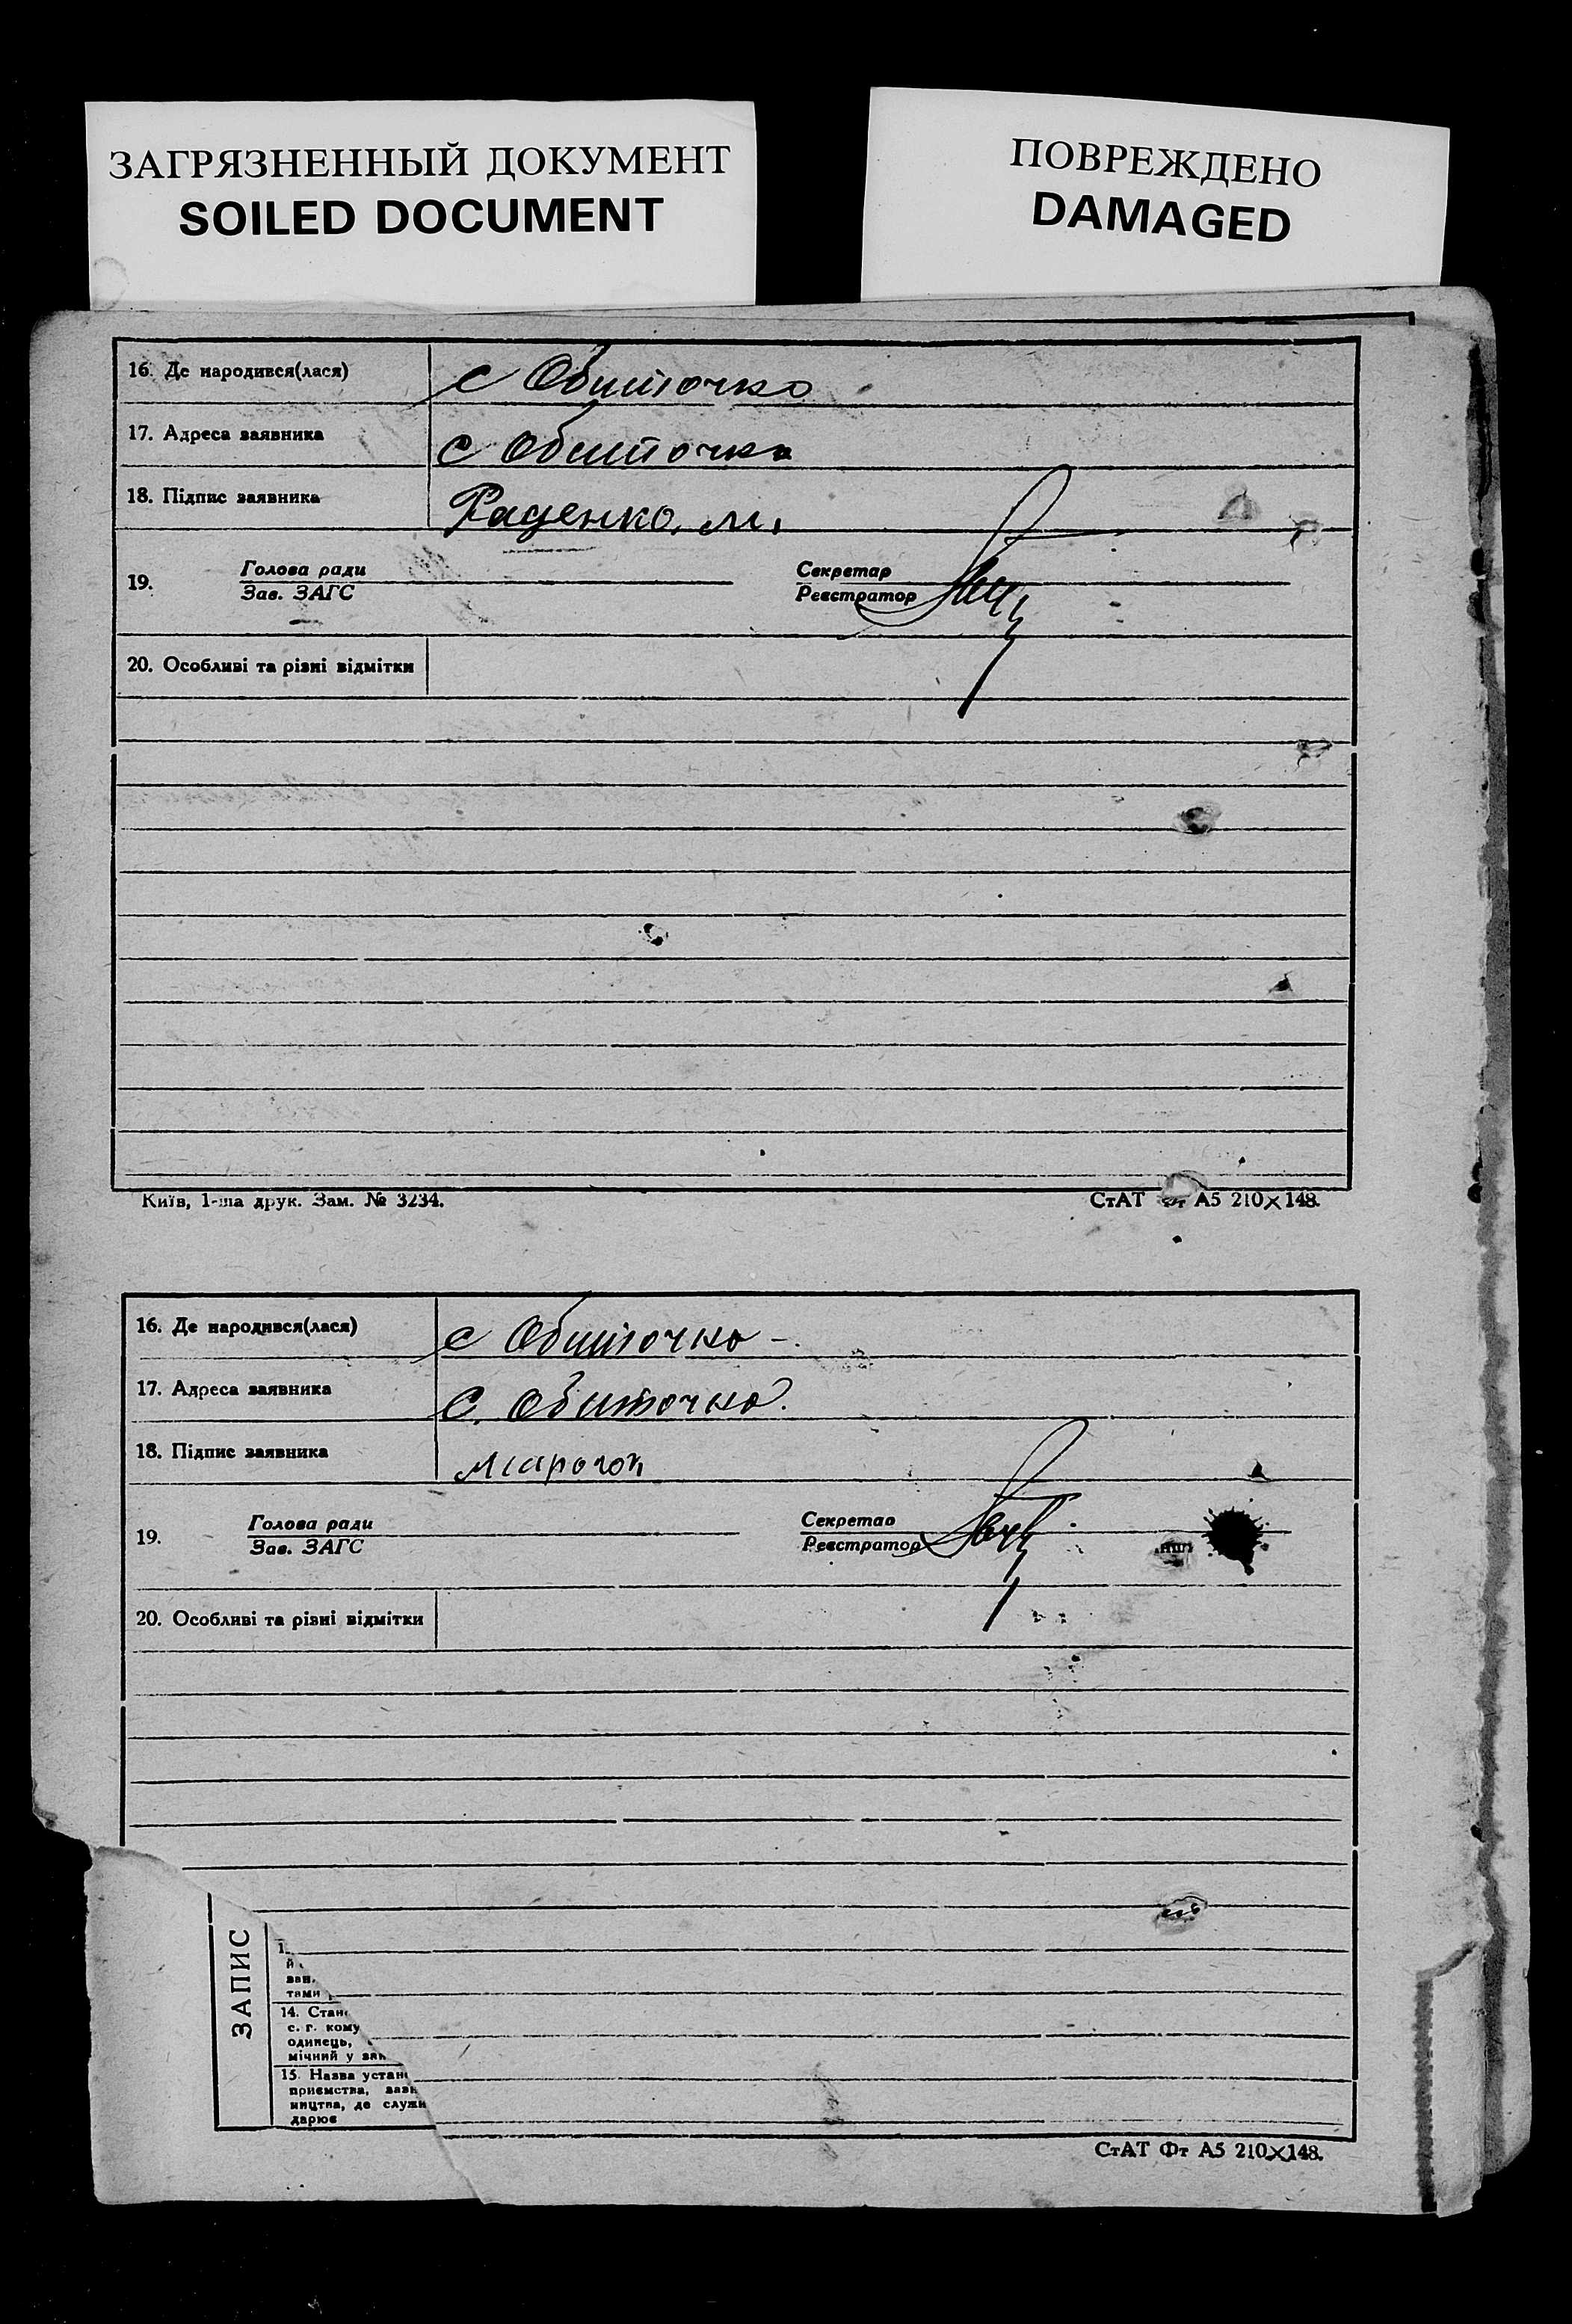 ЗАГРЯЗНЕННЫЙ ДОКУМЕНТ
SOILED DOCUMENT
ПОВРЕЖДЕНО
DAMAGED
16. Де народився(лася) с Обиточко
17. Адреса заявника с Обиточка
18. Підпис заявника Раденко. М.
19. Голова ради
Зав. ЗАГС
Секретар
Реєстратор
20. Особливі та різні відмітки
Київ, 1-ша друк. Зам. № 3234.
СтАТ Фт А5 210×148.
16. Де народився(лася) с Обиточко -.
17. Адреса заявника С. Обиточка.
18. Підпис заявника
19. Голова ради
Зав. ЗАГС
Секретар
Реєстратор
20. Особливі та різні відмітки
ЗАПИС
тами
14. Стан
с. г. кому
одинець,
мічний у
15. Назва устан
приємства,
ництва, де служи
дарює
СтАТ Фт А5 210×148.